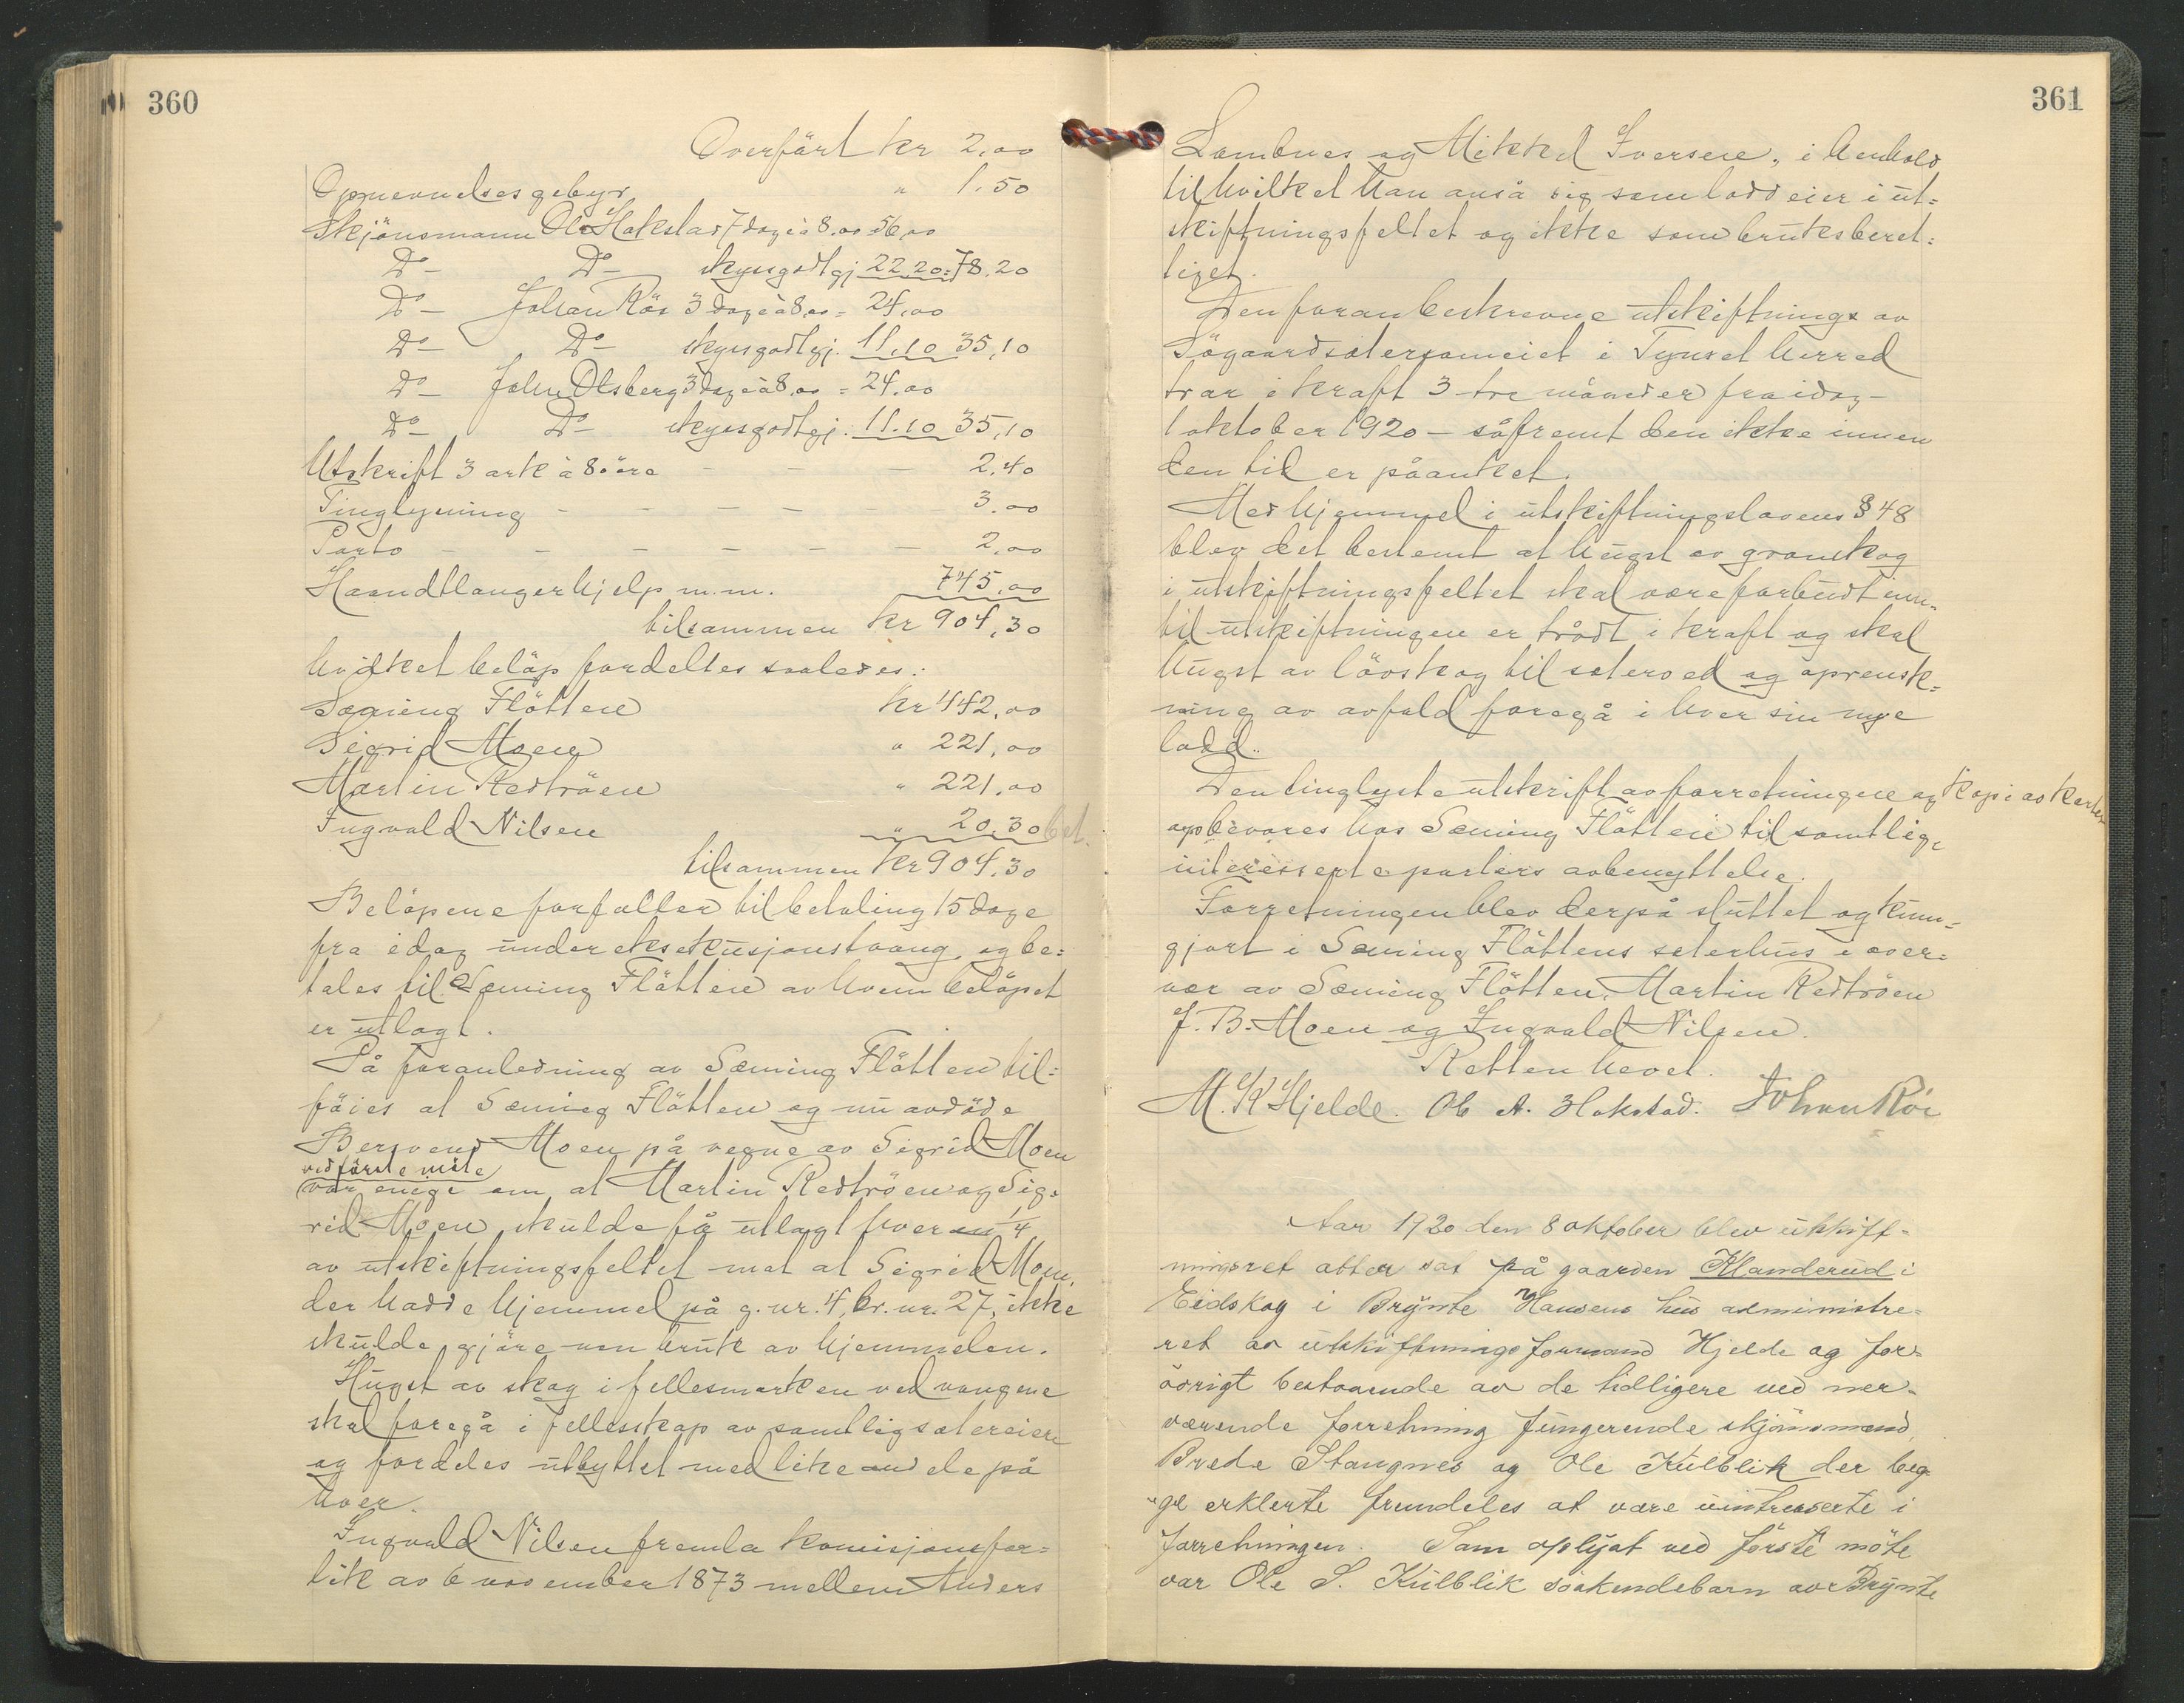 360
Overfört kr 2.00
Opnevnelsesgebyr " 1.50
Skjönsmann Ole Hokstad 7 dage à 8.00 = 56.00
Do — Do — skyssgodtgj 22.20 = 78.20
Do — Johan Röe 3 dage à 8.00 = 24.00
Do — Do — skyssgodtgj. 11.10 35,10
Do — John Olsberg 3 dage à 8.00 = 24.00
Do — Do — skyssgodtgj. 11.10 35,10
Utskrift 3 ark à 80 öre — — — 2.40
Tinglysning — — — — — 3.00
Porto — — — — — — 2.00
Haandtlangerhjelp m.m. 745.00
tilsammen kr 904,30
hvilket belöp fordeltes saaledes:
Sæming Flötten kr 442,00
Sigrid Moen " 221,00
Martin Redtröen " 221,00
Ingvald Nilsen " 20,30 bet.
tilsammen kr 904.30
Belöpene forfaller til betaling 15 dage
fra idag under eksekusjonstvang og be=
tales til Sæming Flötten av hvem belöpet
er utlagt.
På foranledning av Sæming Flötten til=
föies at Sæming Flötten og nu avdöde
Bersvend Moen på vegne av Sigrid Moen
ved förste möte
var enige om at Martin Redtröen og Sig=
rid Moen skulde få utlagt hver en 1/4
av utskiftningsfeltet mot at Sigrid Moen,
der hadde hjemmel på g.nr. 4, br.nr. 27, ikke
skulde gjöre noen bruk av hjemmelen.
Hugst av skog i fellesmarken ved vangene
skal foregå i fellesskap av samtlig sætereiere
og fordeles utbyttet med like andele på
hver.
Ingvald Nilsen fremla komisjonsfor=
lik av 6 november 1873 mellem Anders
361
Lombnes og Mikkel Iversen, i henhold
til hvilket han anså sig som lodd eier i ut=
skiftningsfeltet og ikke som bruksberet=
tiget.
Den foran beskrevne utskiftnings av
Sögaardsætersameiet i Tynset herred
trær i kraft 3 tre måneder fra idag —
1 oktober 1920 — såfremt den ikke innen
den tid er påanket.
Med hjemmel i utskiftningslovens § 48
blev det bestemt at hugst av granskog
i utskiftningsfeltet skal være forbudt inn=
til utskiftningen er trådt i kraft og skal
hugst av lövskog til seterved og oprensk=
ning av avfald foregå i hver sin nye
lodd.
Den tinglyste utskrift av forretningen og kopi av kartet
opbevares hos Sæming Flötten til samtlige
interesserte parters avbenyttelse.
Forretningen blev derpå sluttet og kunn=
gjort i Sæming Flöttens seterhus i over=
vær av Sæming Flötten, Martin Redtröen
J. B. Moen og Ingvald Nilsen.
Retten hevet.
M. K Hjelde. Ole A. Hokstad. Johan Röe
Aar 1920 den 8 oktober blev utskift=
ningsret atter sat på gaarden Klanderud i
Eidskog i Brynte Hansens hus administre=
ret av utskiftningsformand Hjelde og for=
övrigt bestaaende av de tidligere ved nær=
værende forretning fungerende skjönsmænd,
Brede Stangnes og Ole Kulblik der beg=
"ge erklerte fremdeles at være uintresserte i
forretningen. Som oplyst ved förste möte
var Ole S. Kulblik söskendebarn av Brynte